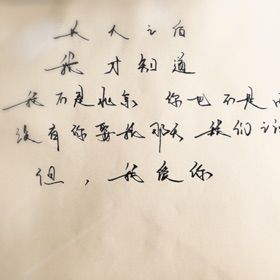 长大之后
我才知道
我不是北京 你也不是
没有你要我那天 我们之
但，我爱你